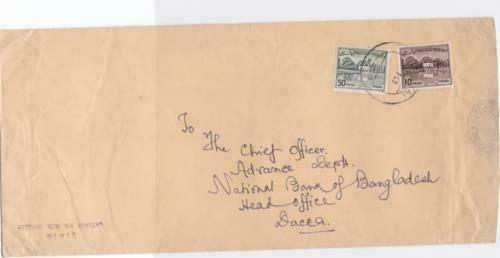 50 PAISA
10 PAISA
To
The Chief Officer.
Advance Deptt.
National Bank of Bangladesh
Head office
Dacca.
ন্যাশনাল ব্যাংক অব বাংলাদেশ